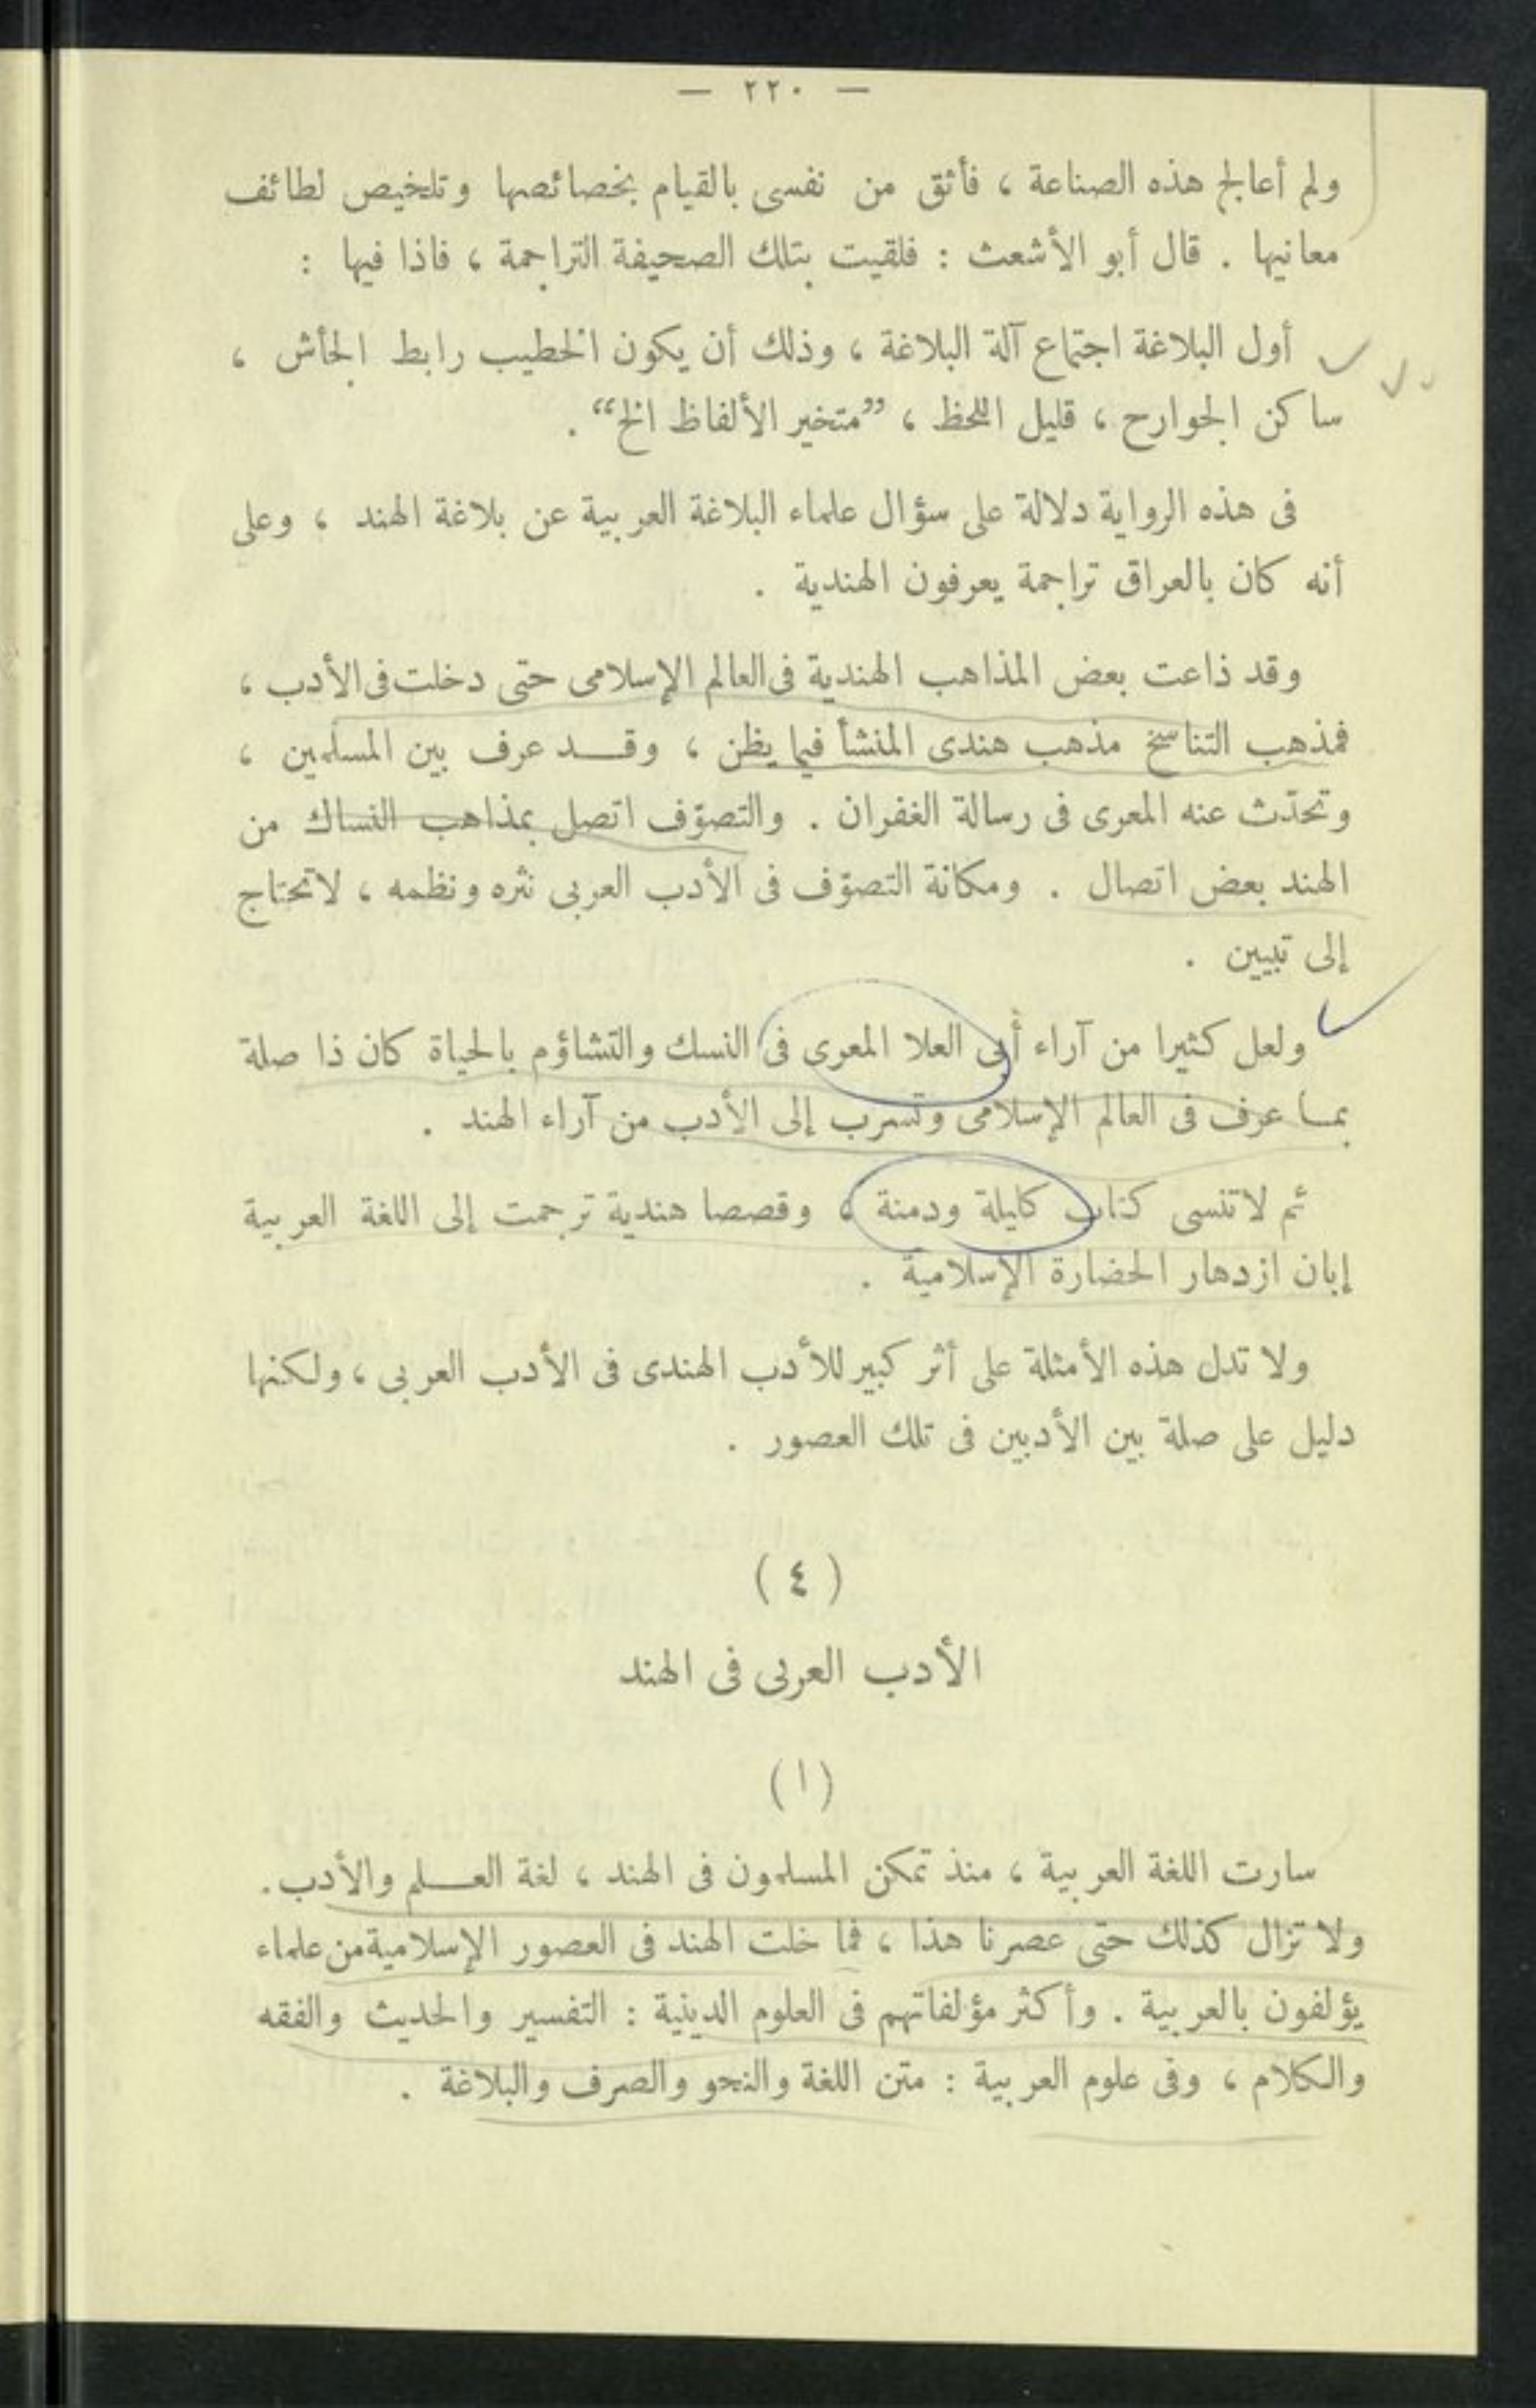 — ٢٢٠ —
ولم أعالج هذه الصناعة ، فأثق من نفسى بالقيام بخصائصها وتلخيص لطائف
معانيها . قال أبو الأشعث : فلقيت بتلك الصحيفة التراجمة ، فاذا فيها :
أول البلاغة اجتماع آلة البلاغة ، وذلك أن يكون الخطيب رابط الجأش ،
ساكن الجوارح ، قليل اللحظ ، ”متخير الألفاظ الخ“ .
فى هذه الرواية دلالة على سؤال علماء البلاغة العربية عن بلاغة الهند ، وعلى
أنه كان بالعراق تراجمة يعرفون الهندية .
وقد ذاعت بعض المذاهب الهندية فى العالم الإسلامى حتى دخلت فى الأدب ،
فمذهب التناسخ مذهب هندى المنشأ فيما يظن ، وقد عرف بين المسلمين ،
وتحدّث عنه المعرى فى رسالة الغفران . والتصوّف اتصل بمذاهب النساك من
الهند بعض اتصال . ومكانة التصوّف فى الأدب العربى نثره ونظمه ، لا تحتاج
إلى تبيين .
ولعل كثيرا من آراء أبى العلا المعرى فى النسك والتشاؤم بالحياة كان ذا صلة
بما عرف فى العالم الإسلامى وتسرب إلى الأدب من آراء الهند .
ثم لا تنسى كتاب كليلة ودمنة ، وقصصا هندية ترجمت إلى اللغة العربية
إبان ازدهار الحضارة الإسلامية .
ولا تدل هذه الأمثلة على أثر كبير للأدب الهندى فى الأدب العربى ، ولكنها
دليل على صلة بين الأدبين فى تلك العصور .
( ٤ )
الأدب العربى فى الهند
( ١ )
سارت اللغة العربية ، منذ تمكن المسلمون فى الهند ، لغة العلم والأدب .
ولا تزال كذلك حتى عصرنا هذا ، فما خلت الهند فى العصور الإسلامية من علماء
يؤلفون بالعربية . وأكثر مؤلفاتهم فى العلوم الدينية : التفسير والحديث والفقه
والكلام ، وفى علوم العربية : متن اللغة والنحو والصرف والبلاغة .